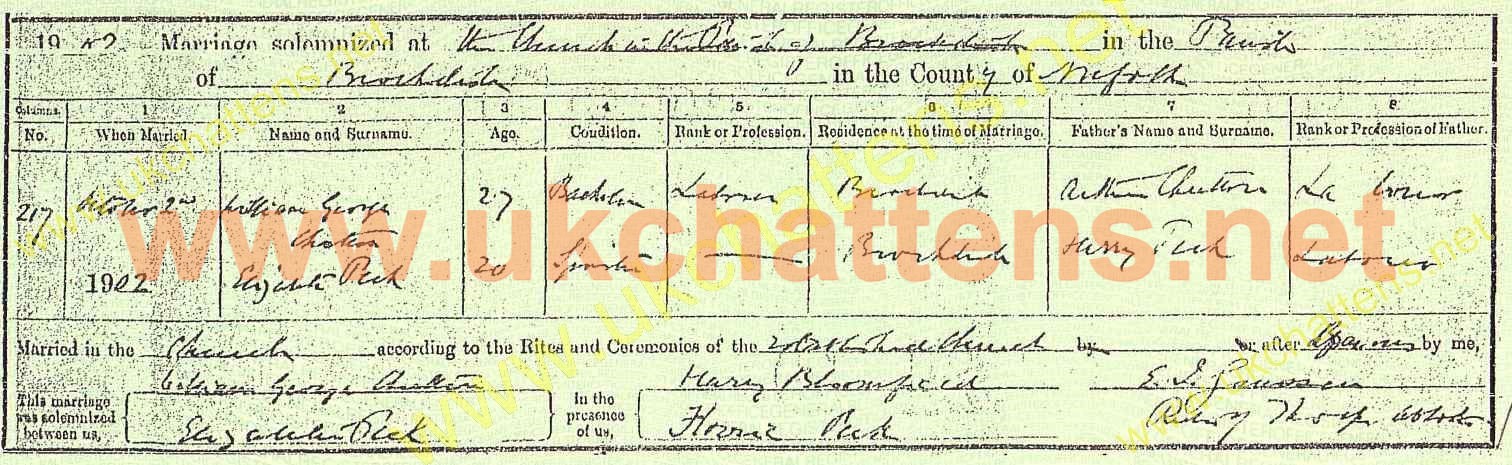 1902 Marriage solemnized at the Church in the Parish of Brockdish in the Parish
of Brockdish in the County of Norfolk
Columns. 1 2 3 4 5 6 7 8
No. When Married. Name and Surname. Age. Condition. Rank or Profession. Residence at the time of Marriage. Father's Name and Surname. Rank or Profession of Father.
217 October 2nd William George 27 Bachelor Labourer Brockdish Arthur Chatten Labourer
Chatten
1902 Elizabeth Peek 20 Spinster — Brockdish Harry Peek Labourer
www.ukchattens.net
Married in the Church according to the Rites and Ceremonies of the Established Church by or after Banns by me,
This marriage was solemnized between us, William George Chatten In the presence of us, Harry Bloomfield E. J.
Elizabeth Peek Florrie Peek Rector of Thorpe Abbotts